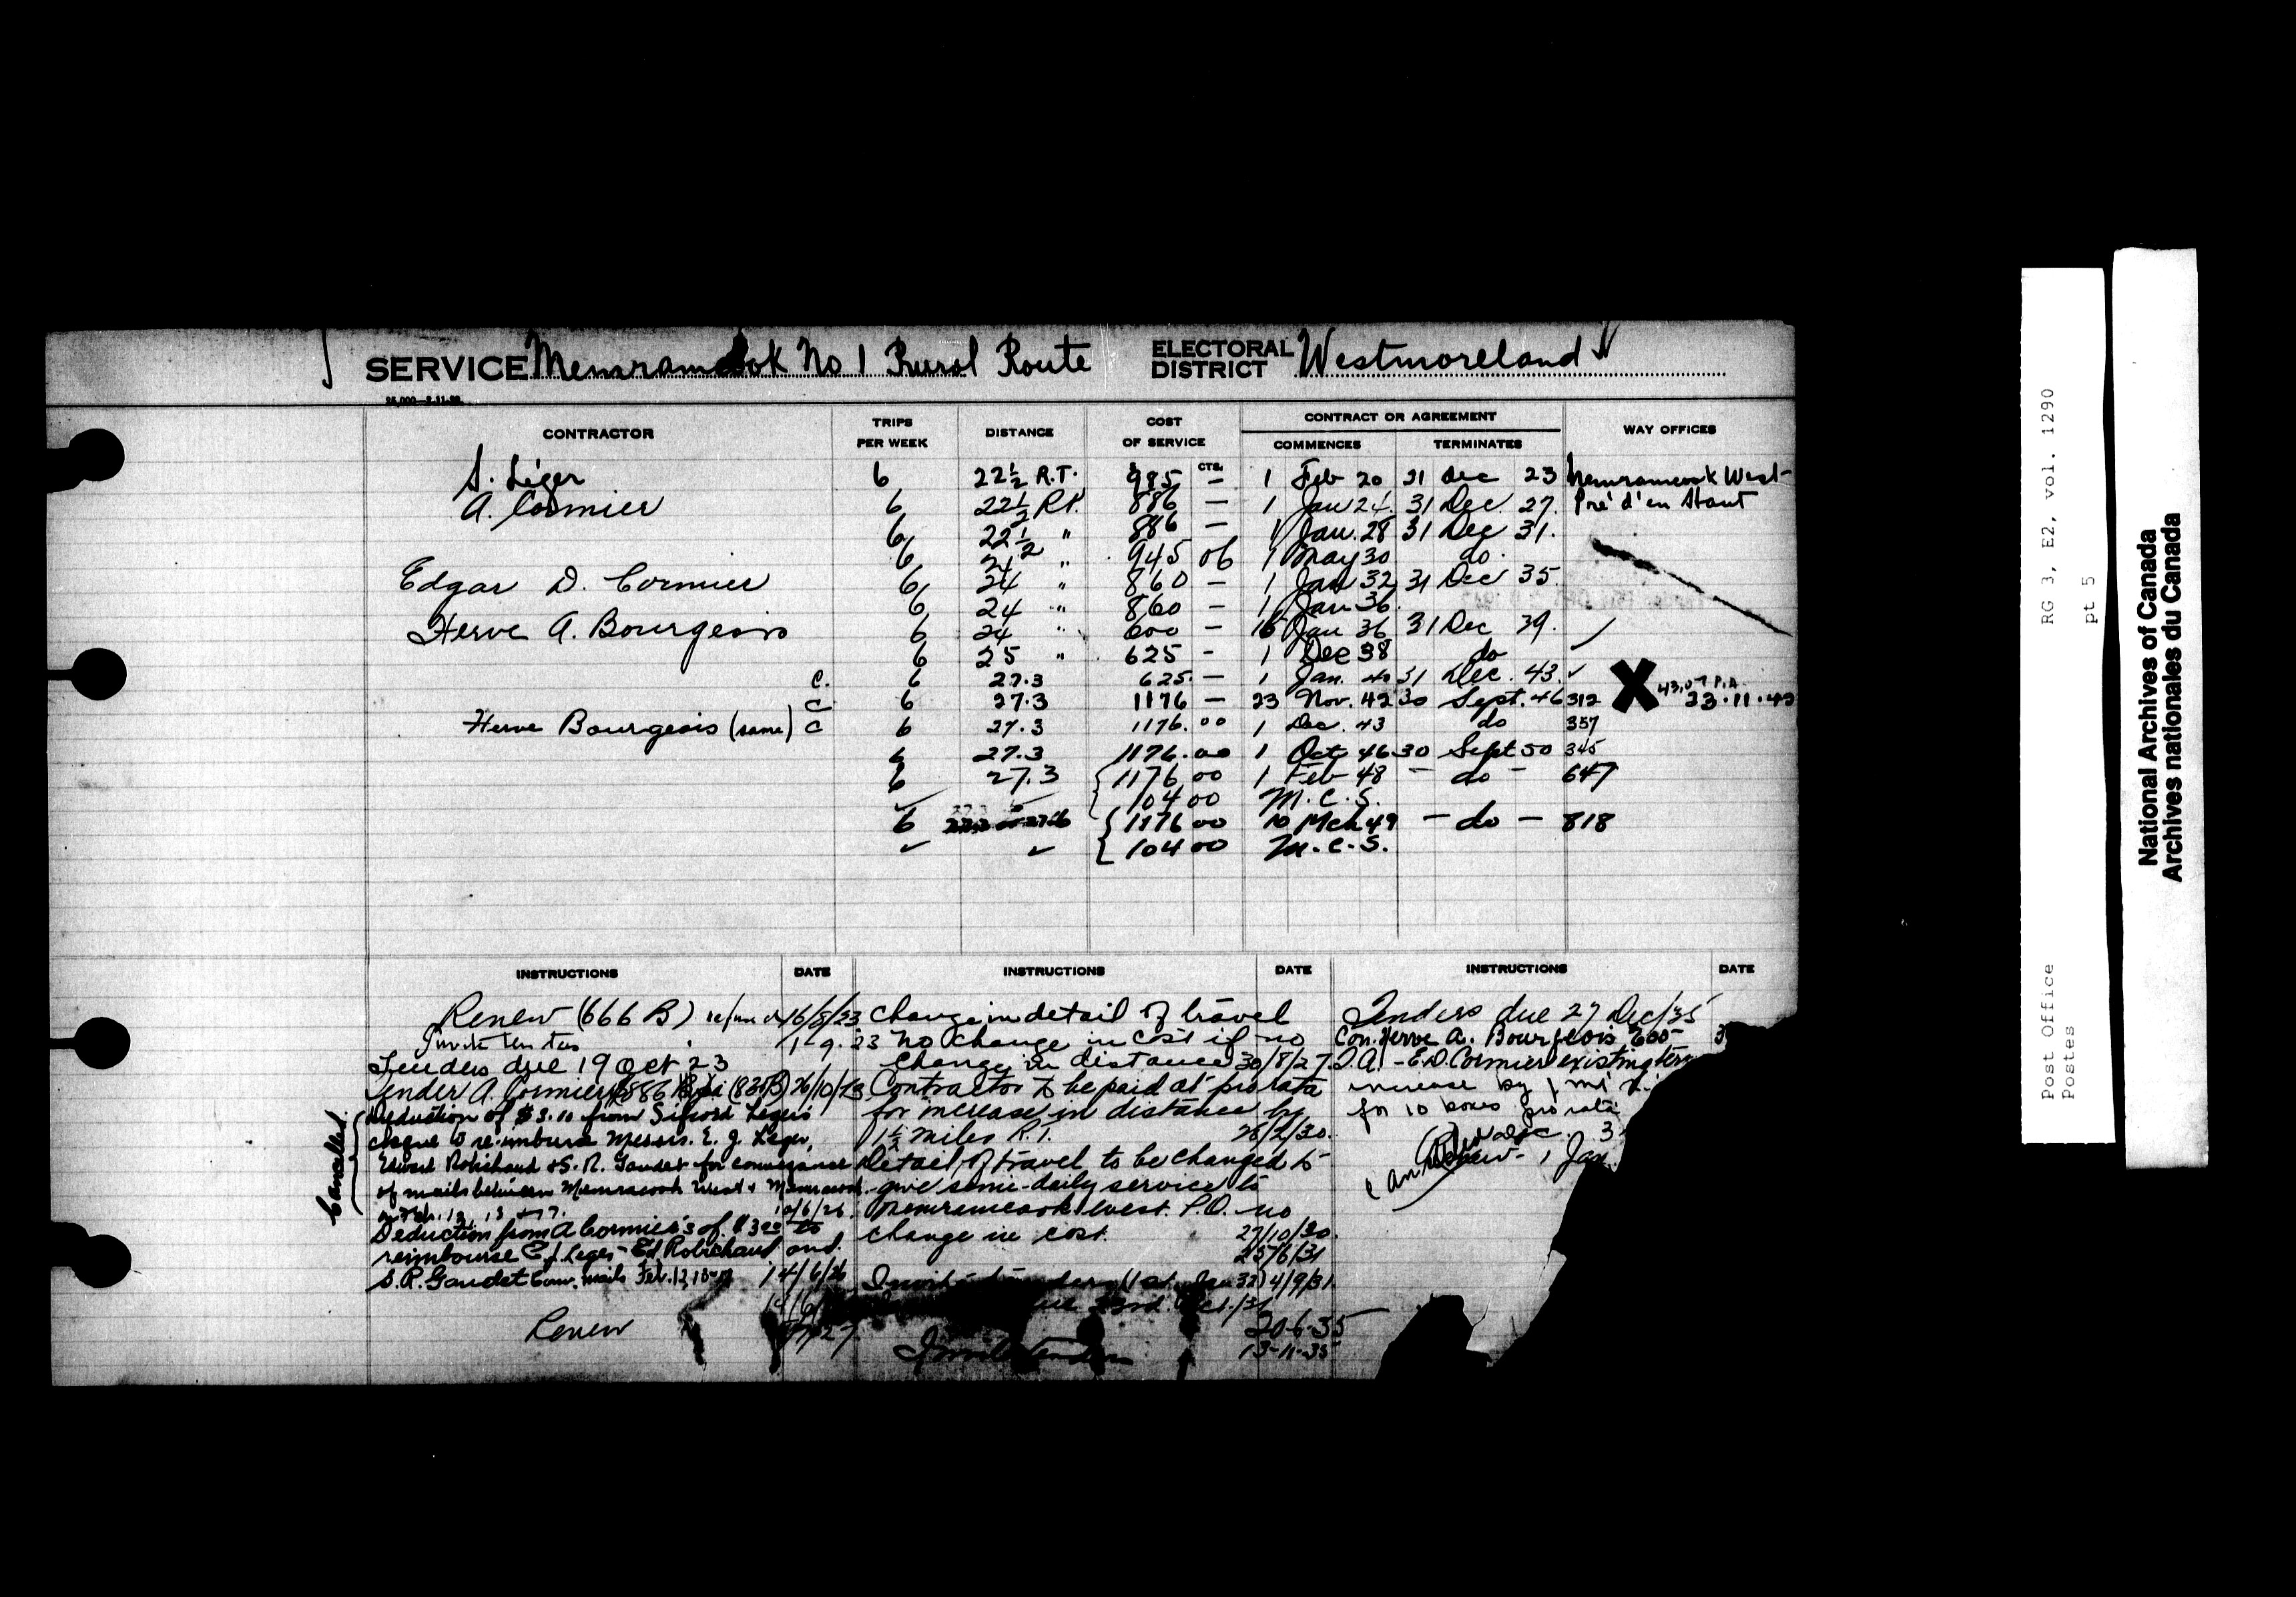 SERVICE Memramcook No 1 Rural Route ELECTORAL DISTRICT Westmoreland
25,000—2-11-20
CONTRACTOR TRIPS PER WEEK DISTANCE COST OF SERVICE CONTRACT OR AGREEMENT COMMENCES TERMINATES WAY OFFICES
$ CTS.
S. Léger 6 22½ R.T. 985 — 1 Feb 20 31 Dec 23 Memramcook West
A. Cormier 6 22½ R.T. 886 — 1 Jan 24 31 Dec. 27. Pré d'en Haut
6 22½ " 886 — 1 Jan. 28 31 Dec 31.
6 24 " 945 06 1 May 30 do.
Edgar D. Cormier 6 24 " 860 — 1 Jan 32 31 Dec 35.
6 24 " 860 — 1 Jan 36.
Herve A. Bourgeois 6 24 " 600 — 16 Jan 36 31 Dec 39.
6 25 " 625 - 1 Dec 38 do
C. 6 27.3 625. — 1 Jan. 40 31 Dec. 43. ✓
C 6 27.3 1176 — 23 Nov. 42 30 Sept. 46 312 X 23.11.42
Herve Bourgeois (same) C 6 27.3 1176.00 1 Dec. 43 do 357
6 27.3 1176.00 1 Oct 46 30 Sept 50 345
6 27.3 { 1176 00 1 Feb 48 - do - 647
✓ ✓ 104 00 M.C.S.
6 { 1176 00 10 Mch 49 - do - 818
✓ ✓ 104 00 M.C.S.
INSTRUCTIONS DATE
Renew (666 B) 16/8/23
Invite tenders 1 9. 23
Tenders due 19 Oct 23
Tender A. Cormier $886 (830B) 26/10/23
Cancelled
Deduction of $3.00 from Sifroid Leger's
cheque to re-imburse Messrs. E. J. Leger,
Edward Robichaud & S. R. Gaudet for conveyance
of mails between Memramcook West & Memramcook
on Feb. 12, 13 & 17. 10/6/26.
Deduction from A Cormier's of $3.00 to
reimbourse E. J. Leger - Ed Robichaud and
S. R. Gaudet Conv. mails Feb. 12, 13 & 17 14/6/26
Renew
INSTRUCTIONS DATE
Change in detail of travel
No change in cost if no
change in distance 30/8/27.
Contractor to be paid at pro rata
for increase in distance by
1½ miles R.T. 28/2/30.
Detail of travel to be changed to
give semi-daily service to
Memramcook West. P.O. - no
change in cost. 27/10/30.
25/6/31
Invite tenders (1st Jan 32) 14/9/31.
due 23rd. Oct./31
20-6-35
Invite Tenders 13-11-35
INSTRUCTIONS DATE
Tenders due 27 Dec/35
Con. Herve A. Bourgeois 600
T.A. - E.D. Cormier existing term
increase by 1 mi
for 10 boxes pro rata
Renew - 1 Jan
Post Office RG 3, E2, vol. 1290
Postes pt 5
National Archives of Canada
Archives nationales du Canada